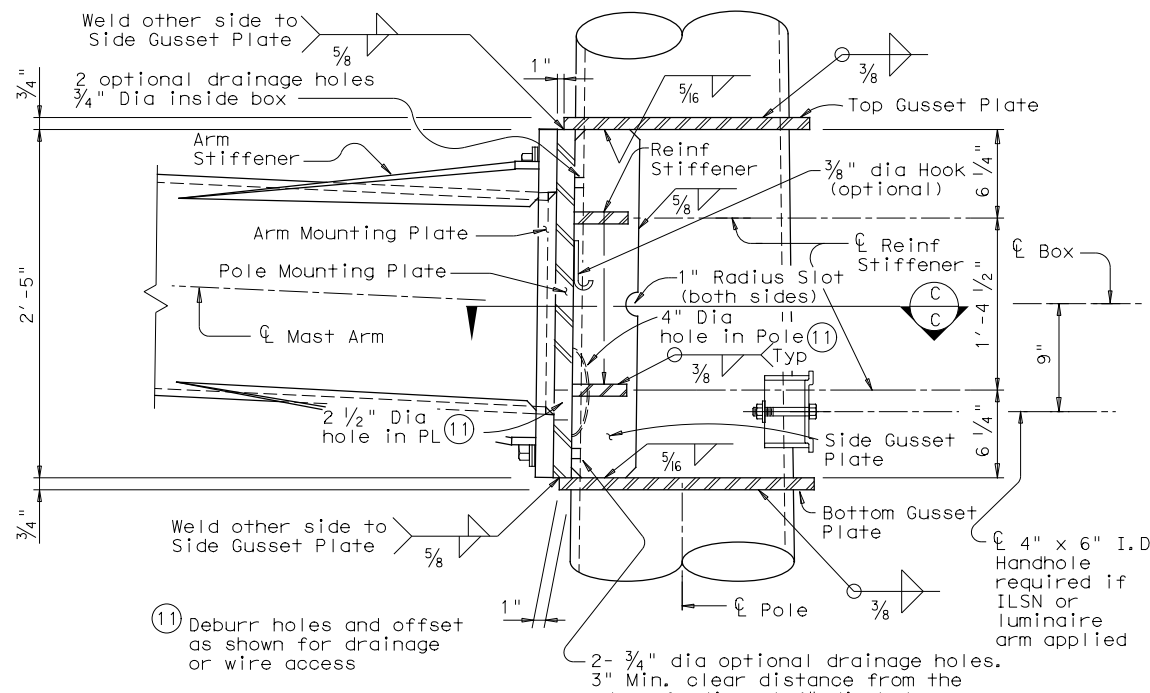 Weld other side to
Side Gusset Plate
5/8
2 optional drainage holes
3/4" Dia inside box
3/4"
1"
5/16
3/8
Top Gusset Plate
Arm
Stiffener
Reinf
Stiffener
3/8" dia Hook
(optional)
6 1/4"
5/8
Arm Mounting Plate
Pole Mounting Plate
℄ Reinf
Stiffener
℄ Box
1" Radius Slot
(both sides)
C
C
2'-5"
1'-4 1/2"
℄ Mast Arm
4" Dia
hole in Pole 11
Typ
3/8
9"
2 1/2" Dia
hole in PL 11
Side Gusset
Plate
6 1/4"
5/16
3/4"
Weld other side to
Side Gusset Plate
5/8
Bottom Gusset
Plate
℄ 4" x 6" I.D
Handhole
required if
ILSN or
luminaire
arm applied
1"
℄ Pole
3/8
11 Deburr holes and offset
as shown for drainage
or wire access
2- 3/4" dia optional drainage holes.
3" Min. clear distance from the